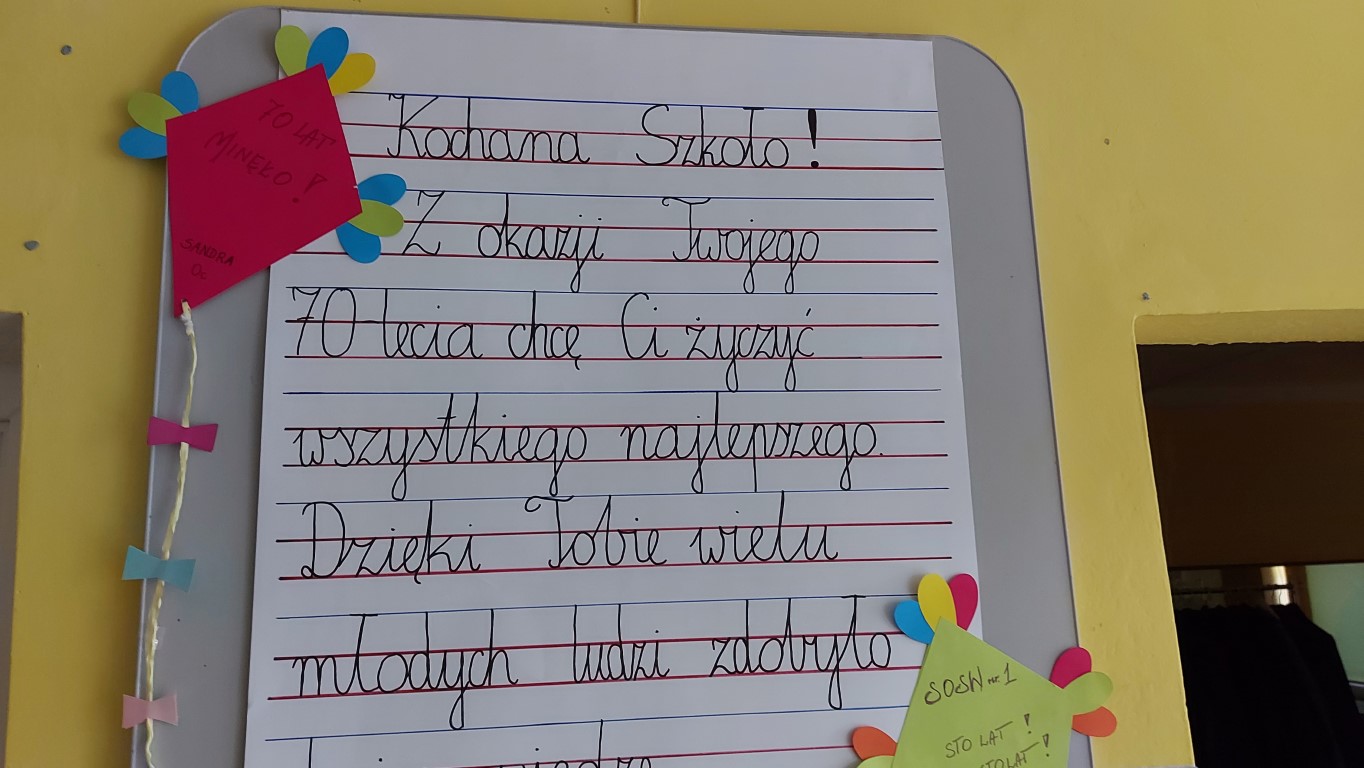 70 LAT
MINĘŁO!
SANDRA
Oc
Kochana Szkoło!
Z okazji Twojego
70-lecia chcę Ci życzyć
wszystkiego najlepszego.
Dzięki Tobie wielu
młodych ludzi zdobyło
SOSW nr. 1
STO LAT!
STO LAT!